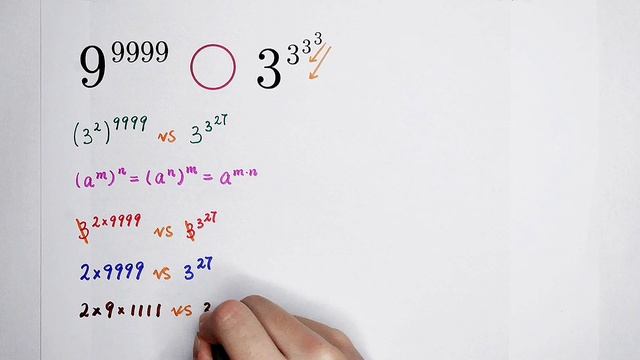 9^9999 ◯ 3^3^3^3
(3^2)^9999 vs 3^3^27
(a^m)^n = (a^n)^m = a^m·n
3^2×9999 vs 3^3^27
2×9999 vs 3^27
2×9×1111 vs